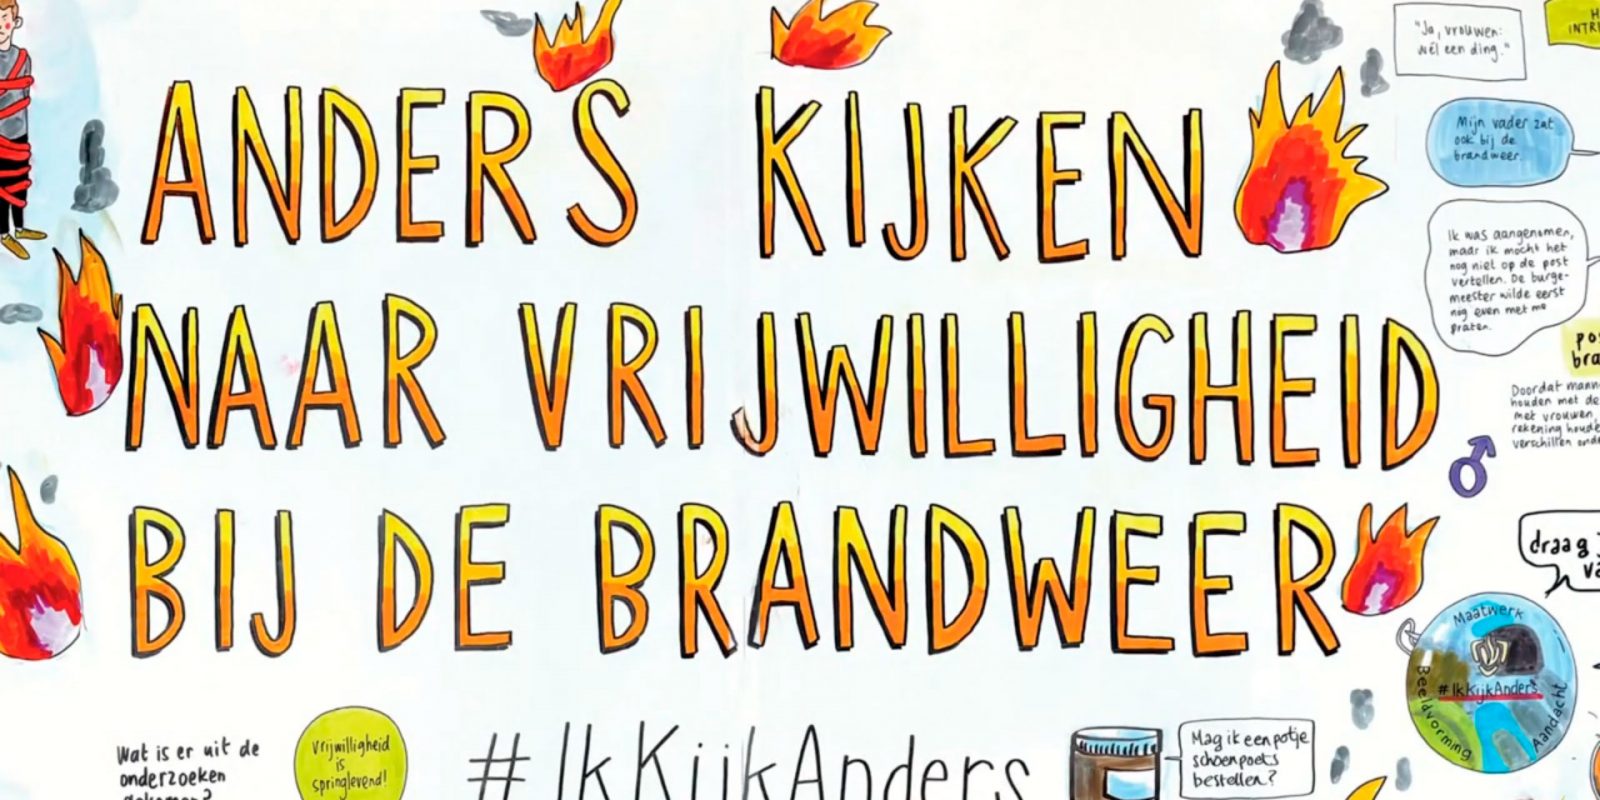 ANDERS KIJKEN
NAAR VRIJWILLIGHEID
BIJ DE BRANDWEER
#IkKijkAnders
"Ja, vrouwen:
wél een ding."
Mijn vader zat
ook bij de
brandweer.
Ik was aangenomen,
maar ik mocht het
nog niet op de post
vertellen. De burge-
meester wilde eerst
nog even met me
praten.
Doordat
houden met de
met vrouwen,
rekening
verschillen
draag
Maatwerk
#IkKijkAnders
Beeldvorming
Aandacht
Wat is er uit de
onderzoeken
Vrijwilligheid
is
springlevend!
Mag ik een potje
schoenpoets
bestellen?